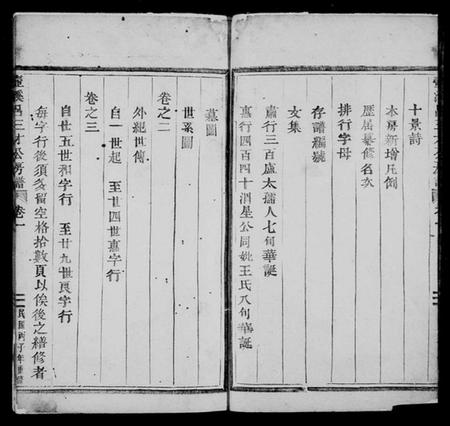 十景詩
本房新增凡例
歷屆纂修名次
排行字母
存譜編號
女集
肅行三百盧太孺人七旬華誕
惠行四百四十泗星公同妣王氏八旬華誕
墓圖
世系圖
卷之二
外紀世傳
自一世起 至廿四世惠字行
卷之三
自廿五世和字行 至廿九世良字行
每字行後須多留空格拾數頁以俟後之繕修者
壺溪呂三才公房譜 卷一
民國丙子年重修